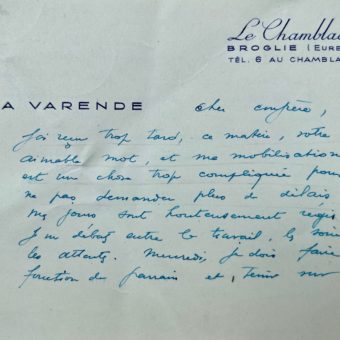 Le Chambla
BROGLIE (EURE
TÉL. 6 AU CHAMBLA
A VARENDE
Cher confrère,
J'ai reçu trop tard, ce matin, votre
aimable mot, et ma mobilisation
est un chose trop compliquée pour
ne pas demander plus de délais
Mes jours sont honteusement régis
J'me débats entre le travail, les soins
les attents. Mercredi, je dois faire
fonction de parrain et tenir sur